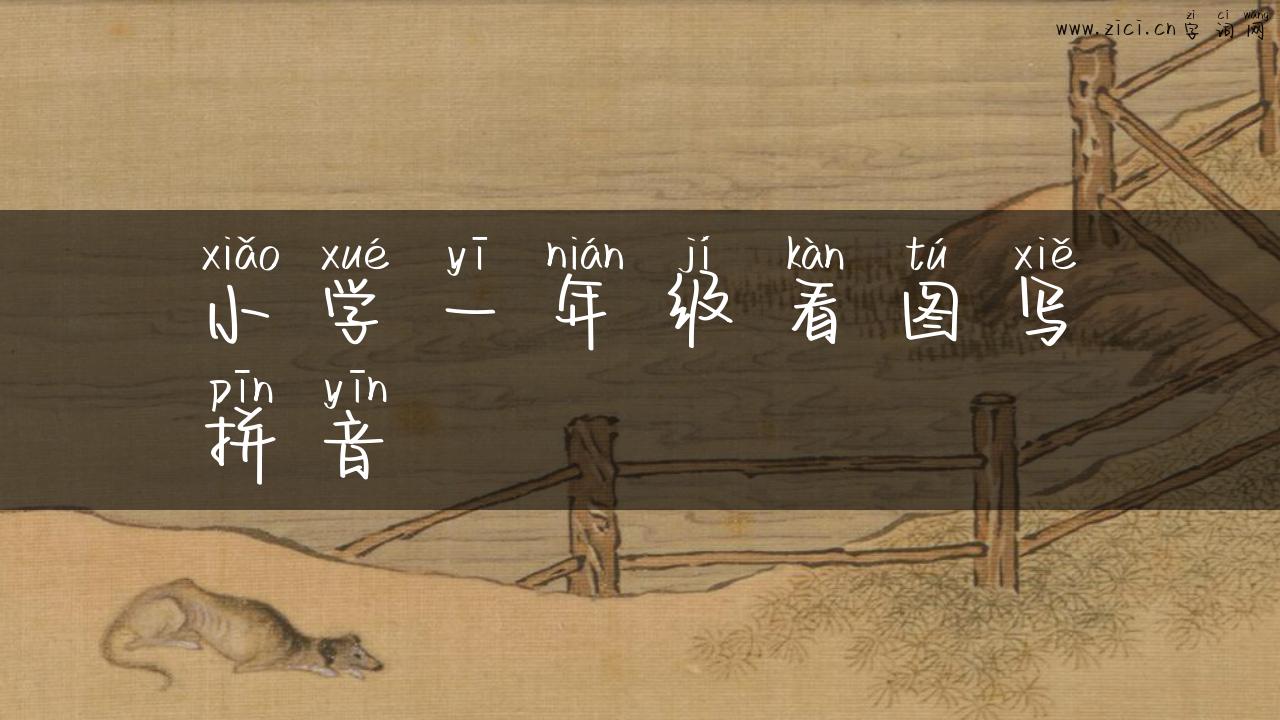 zì cí wǎng
www.zici.cn 字词网
xiǎo xué yī nián jí kàn tú xiě
小学一年级看图写
pīn yīn
拼音